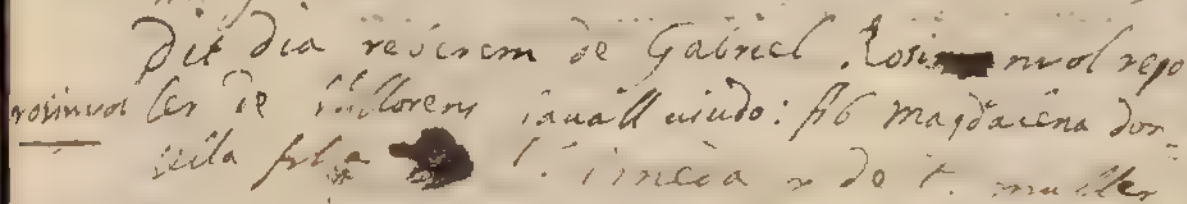 Dit dia reberem de Gabriel Rosi nvol rejo
rosinvol ler de St Llorens Savall viudo: ab Magdalena don
sella filla de t. muller